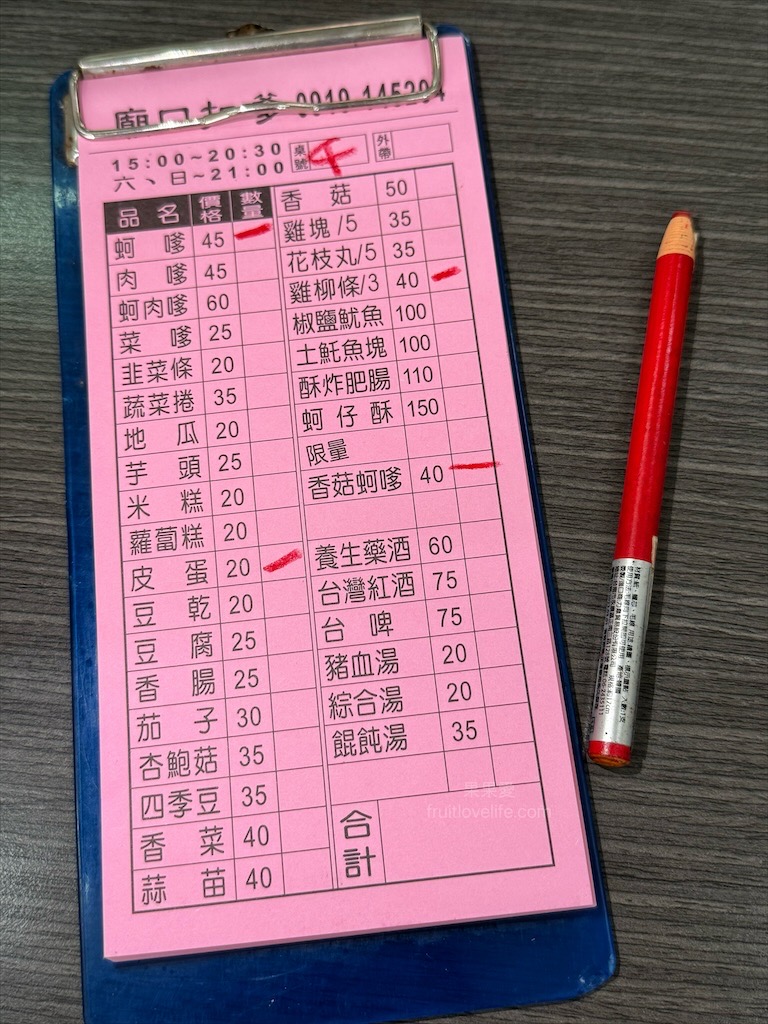 廟口 爹 0919-145294
15:00~20:30 桌號 4 外帶
六、日~21:00
品名 價格 數量
蚵嗲 45
肉嗲 45
蚵肉嗲 60
菜嗲 25
韭菜條 20
蔬菜捲 35
地瓜 20
芋頭 25
米糕 20
蘿蔔糕 20
皮蛋 20
豆乾 20
豆腐 25
香腸 25
茄子 30
杏鮑菇 35
四季豆 35
香菜 40
蒜苗 40
香菇 50
雞塊/5 35
花枝丸/5 35
雞柳條/3 40
椒鹽魷魚 100
土魠魚塊 100
酥炸肥腸 110
蚵仔酥 150
限量
香菇蚵嗲 40
養生藥酒 60
台灣紅酒 75
台啤 75
豬血湯 20
綜合湯 20
餛飩湯 35
合計
果果愛
fruitlovelife.com